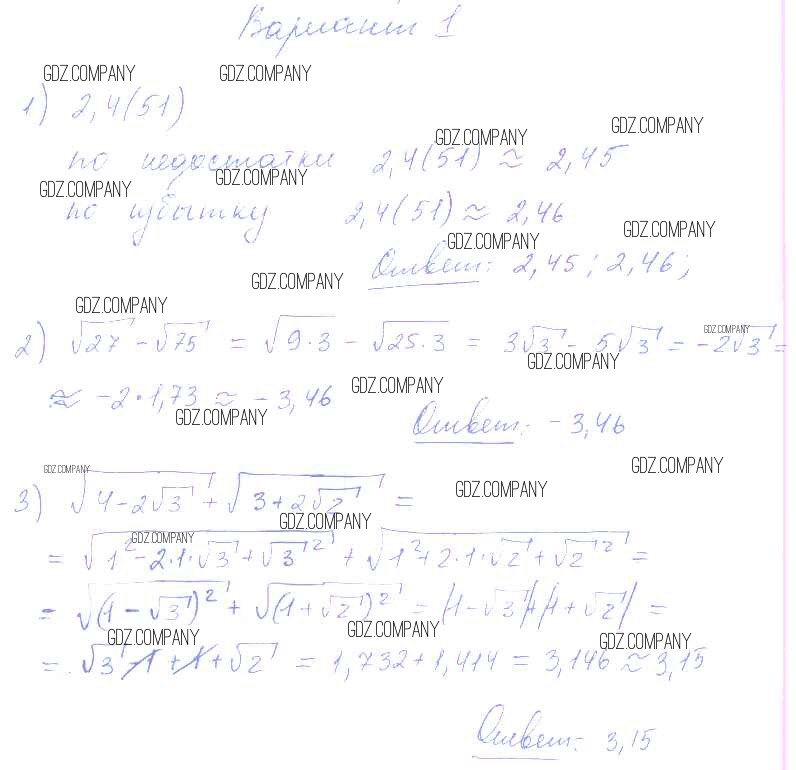 Вариант 1
GDZ.COMPANY GDZ.COMPANY
1) 2,4(51)
GDZ.COMPANY GDZ.COMPANY
по недостатки 2,4(51) ≈ 2,45
GDZ.COMPANY GDZ.COMPANY
по избытку 2,4(51) ≈ 2,46
GDZ.COMPANY GDZ.COMPANY
Ответ: 2,45; 2,46;
GDZ.COMPANY
GDZ.COMPANY
2) √27 - √75 = √9·3 - √25·3 = 3√3 - 5√3 = -2√3 =
GDZ.COMPANY
GDZ.COMPANY
≈ -2·1,73 ≈ -3,46
GDZ.COMPANY GDZ.COMPANY
Ответ: -3,46
GDZ.COMPANY GDZ.COMPANY
GDZ.COMPANY
3) √4-2√3 + √3+2√2 =
GDZ.COMPANY
GDZ.COMPANY
= √1²-2·1·√3+√3² + √1²+2·1·√2+√2² =
= √(1-√3)² + √(1+√2)² = |1-√3|+|1+√2| =
GDZ.COMPANY GDZ.COMPANY GDZ.COMPANY
= √3-1+1+√2 = 1,732+1,414 = 3,146 ≈ 3,15
Ответ: 3,15